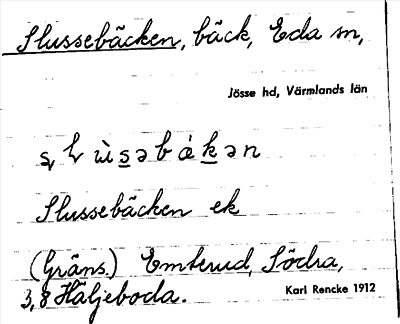 Slussebäcken, bäck, Eda sn,
Jösse hd, Värmlands län
Slussebäcken ek
(Gräns.) Emterud, Södra,
3,8 Häljeboda.
Karl Rencke 1912